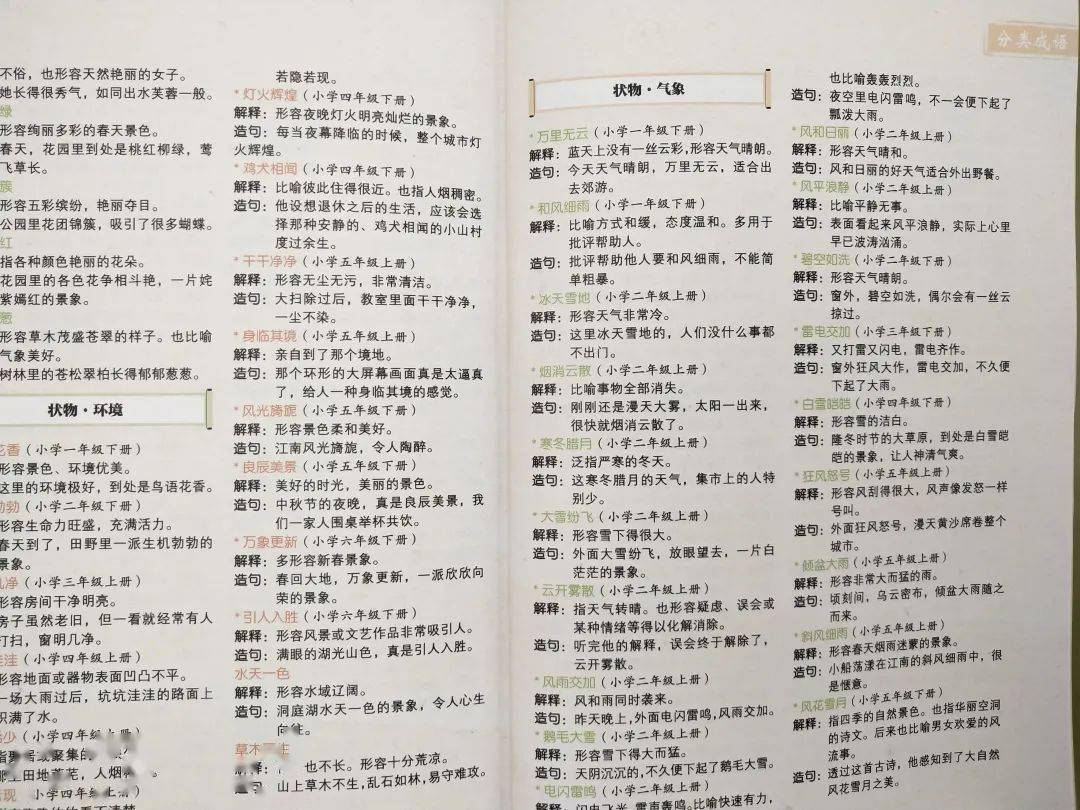 不俗，也形容天然艳丽的女子。
她长得很秀气，如同出水芙蓉一般。
绿
形容绚丽多彩的春天景色。
春天，花园里到处是桃红柳绿，莺
飞草长。
簇
形容五彩缤纷，艳丽夺目。
公园里花团锦簇，吸引了很多蝴蝶。
红
指各种颜色艳丽的花朵。
花园里的各色花争相斗艳，一片姹
紫嫣红的景象。
葱
形容草木茂盛苍翠的样子。也比喻
气象美好。
树林里的苍松翠柏长得郁郁葱葱。
状物·环境
花香（小学一年级下册）
形容景色、环境优美。
这里的环境极好，到处是鸟语花香。
勃勃（小学二年级下册）
形容生命力旺盛，充满活力。
春天到了，田野里一派生机勃勃的
景象。
几净（小学三年级上册）
形容房间干净明亮。
房子虽然老旧，但一看就经常有人
打扫，窗明几净。
洼洼（小学四年级上册）
形容地面或器物表面凹凸不平。
一场大雨过后，坑坑洼洼的路面上
积满了水。
稀少（小学四年级上册）
指
聚集的
田地荒芜，人烟
若现（小学四年级上册）
若隐若现。
*灯火辉煌（小学四年级下册）
解释：形容夜晚灯火明亮灿烂的景象。
造句：每当夜幕降临的时候，整个城市灯
火辉煌。
*鸡犬相闻（小学四年级下册）
解释：比喻彼此住得很近。也指人烟稠密。
造句：他设想退休之后的生活，应该会选
择那种安静的、鸡犬相闻的小山村
度过余生。
*干干净净（小学五年级上册）
解释：形容无尘无污，非常清洁。
造句：大扫除过后，教室里面干干净净，
一尘不染。
*身临其境（小学五年级上册）
解释：亲自到了那个境地。
造句：那个环形的大屏幕画面真是太逼真
了，给人一种身临其境的感觉。
*风光旖旎（小学五年级下册）
解释：形容景色柔和美好。
造句：江南风光旖旎，令人陶醉。
*良辰美景（小学五年级下册）
解释：美好的时光，美丽的景色。
造句：中秋节的夜晚，真是良辰美景，我
们一家人围桌举杯共饮。
*万象更新（小学六年级下册）
解释：多形容新春景象。
造句：春回大地，万象更新，一派欣欣向
荣的景象。
*引人入胜（小学六年级下册）
解释：形容风景或文艺作品非常吸引人。
造句：满眼的湖光山色，真是引人入胜。
水天一色
解释：形容水域辽阔。
造句：洞庭湖水天一色的景象，令人心生
向往。
草木不生
解释：也不长。形容十分荒凉。
山上草木不生，乱石如林，易守难攻。
分类成语
状物·气象
*万里无云（小学一年级下册）
解释：蓝天上没有一丝云彩，形容天气晴朗。
造句：今天天气晴朗，万里无云，适合出
去郊游。
*和风细雨（小学一年级下册）
解释：比喻方式和缓，态度温和。多用于
批评帮助人。
造句：批评帮助他人要和风细雨，不能简
单粗暴。
*冰天雪地（小学二年级上册）
解释：形容天气非常冷。
造句：这里冰天雪地的，人们没什么事都
不出门。
*烟消云散（小学二年级上册）
解释：比喻事物全部消失。
造句：刚刚还是漫天大雾，太阳一出来，
很快就烟消云散了。
*寒冬腊月（小学二年级上册）
解释：泛指严寒的冬天。
造句：这寒冬腊月的天气，集市上的人特
别少。
*大雪纷飞（小学二年级上册）
解释：形容雪下得很大。
造句：外面大雪纷飞，放眼望去，一片白
茫茫的景象。
*云开雾散（小学二年级上册）
解释：指天气转晴。也形容疑虑、误会或
某种情绪等得以化解消除。
造句：听完他的解释，误会终于解除了，
云开雾散。
*风雨交加（小学二年级上册）
解释：风和雨同时袭来。
造句：昨天晚上，外面电闪雷鸣，风雨交加。
*鹅毛大雪（小学二年级上册）
解释：形容雪下得大而猛。
造句：天阴沉沉的，不久便下起了鹅毛大雪。
*电闪雷鸣（小学二年级上册）
解释：闪电飞光，雷声轰鸣。比喻快速有力，
也比喻轰轰烈烈。
造句：夜空里电闪雷鸣，不一会便下起了
瓢泼大雨。
*风和日丽（小学二年级上册）
解释：形容天气晴和。
造句：风和日丽的好天气适合外出野餐。
*风平浪静（小学二年级上册）
解释：比喻平静无事。
造句：表面看起来风平浪静，实际上心里
早已波涛汹涌。
*碧空如洗（小学二年级下册）
解释：形容天气晴朗。
造句：窗外，碧空如洗，偶尔会有一丝云
掠过。
*雷电交加（小学三年级下册）
解释：又打雷又闪电，雷电齐作。
造句：窗外狂风大作，雷电交加，不久便
下起了大雨。
*白雪皑皑（小学四年级下册）
解释：形容雪的洁白。
造句：隆冬时节的大草原，到处是白雪皑
皑的景象，让人神清气爽。
*狂风怒号（小学五年级上册）
解释：形容风刮得很大，风声像发怒一样
号叫。
造句：外面狂风怒号，漫天黄沙席卷整个
城市。
*倾盆大雨（小学五年级上册）
解释：形容非常大而猛的雨。
造句：顷刻间，乌云密布，倾盆大雨随之
而来。
*斜风细雨（小学五年级上册）
解释：形容春天烟雨迷蒙的景象。
造句：小船荡漾在江南的斜风细雨中，很
是惬意。
*风花雪月（小学五年级下册）
解释：指四季的自然景色。也指华丽空洞
的诗文。后来也比喻男女欢爱的风
流事。
造句：透过这首古诗，他感知到了大自然
风花雪月之美。